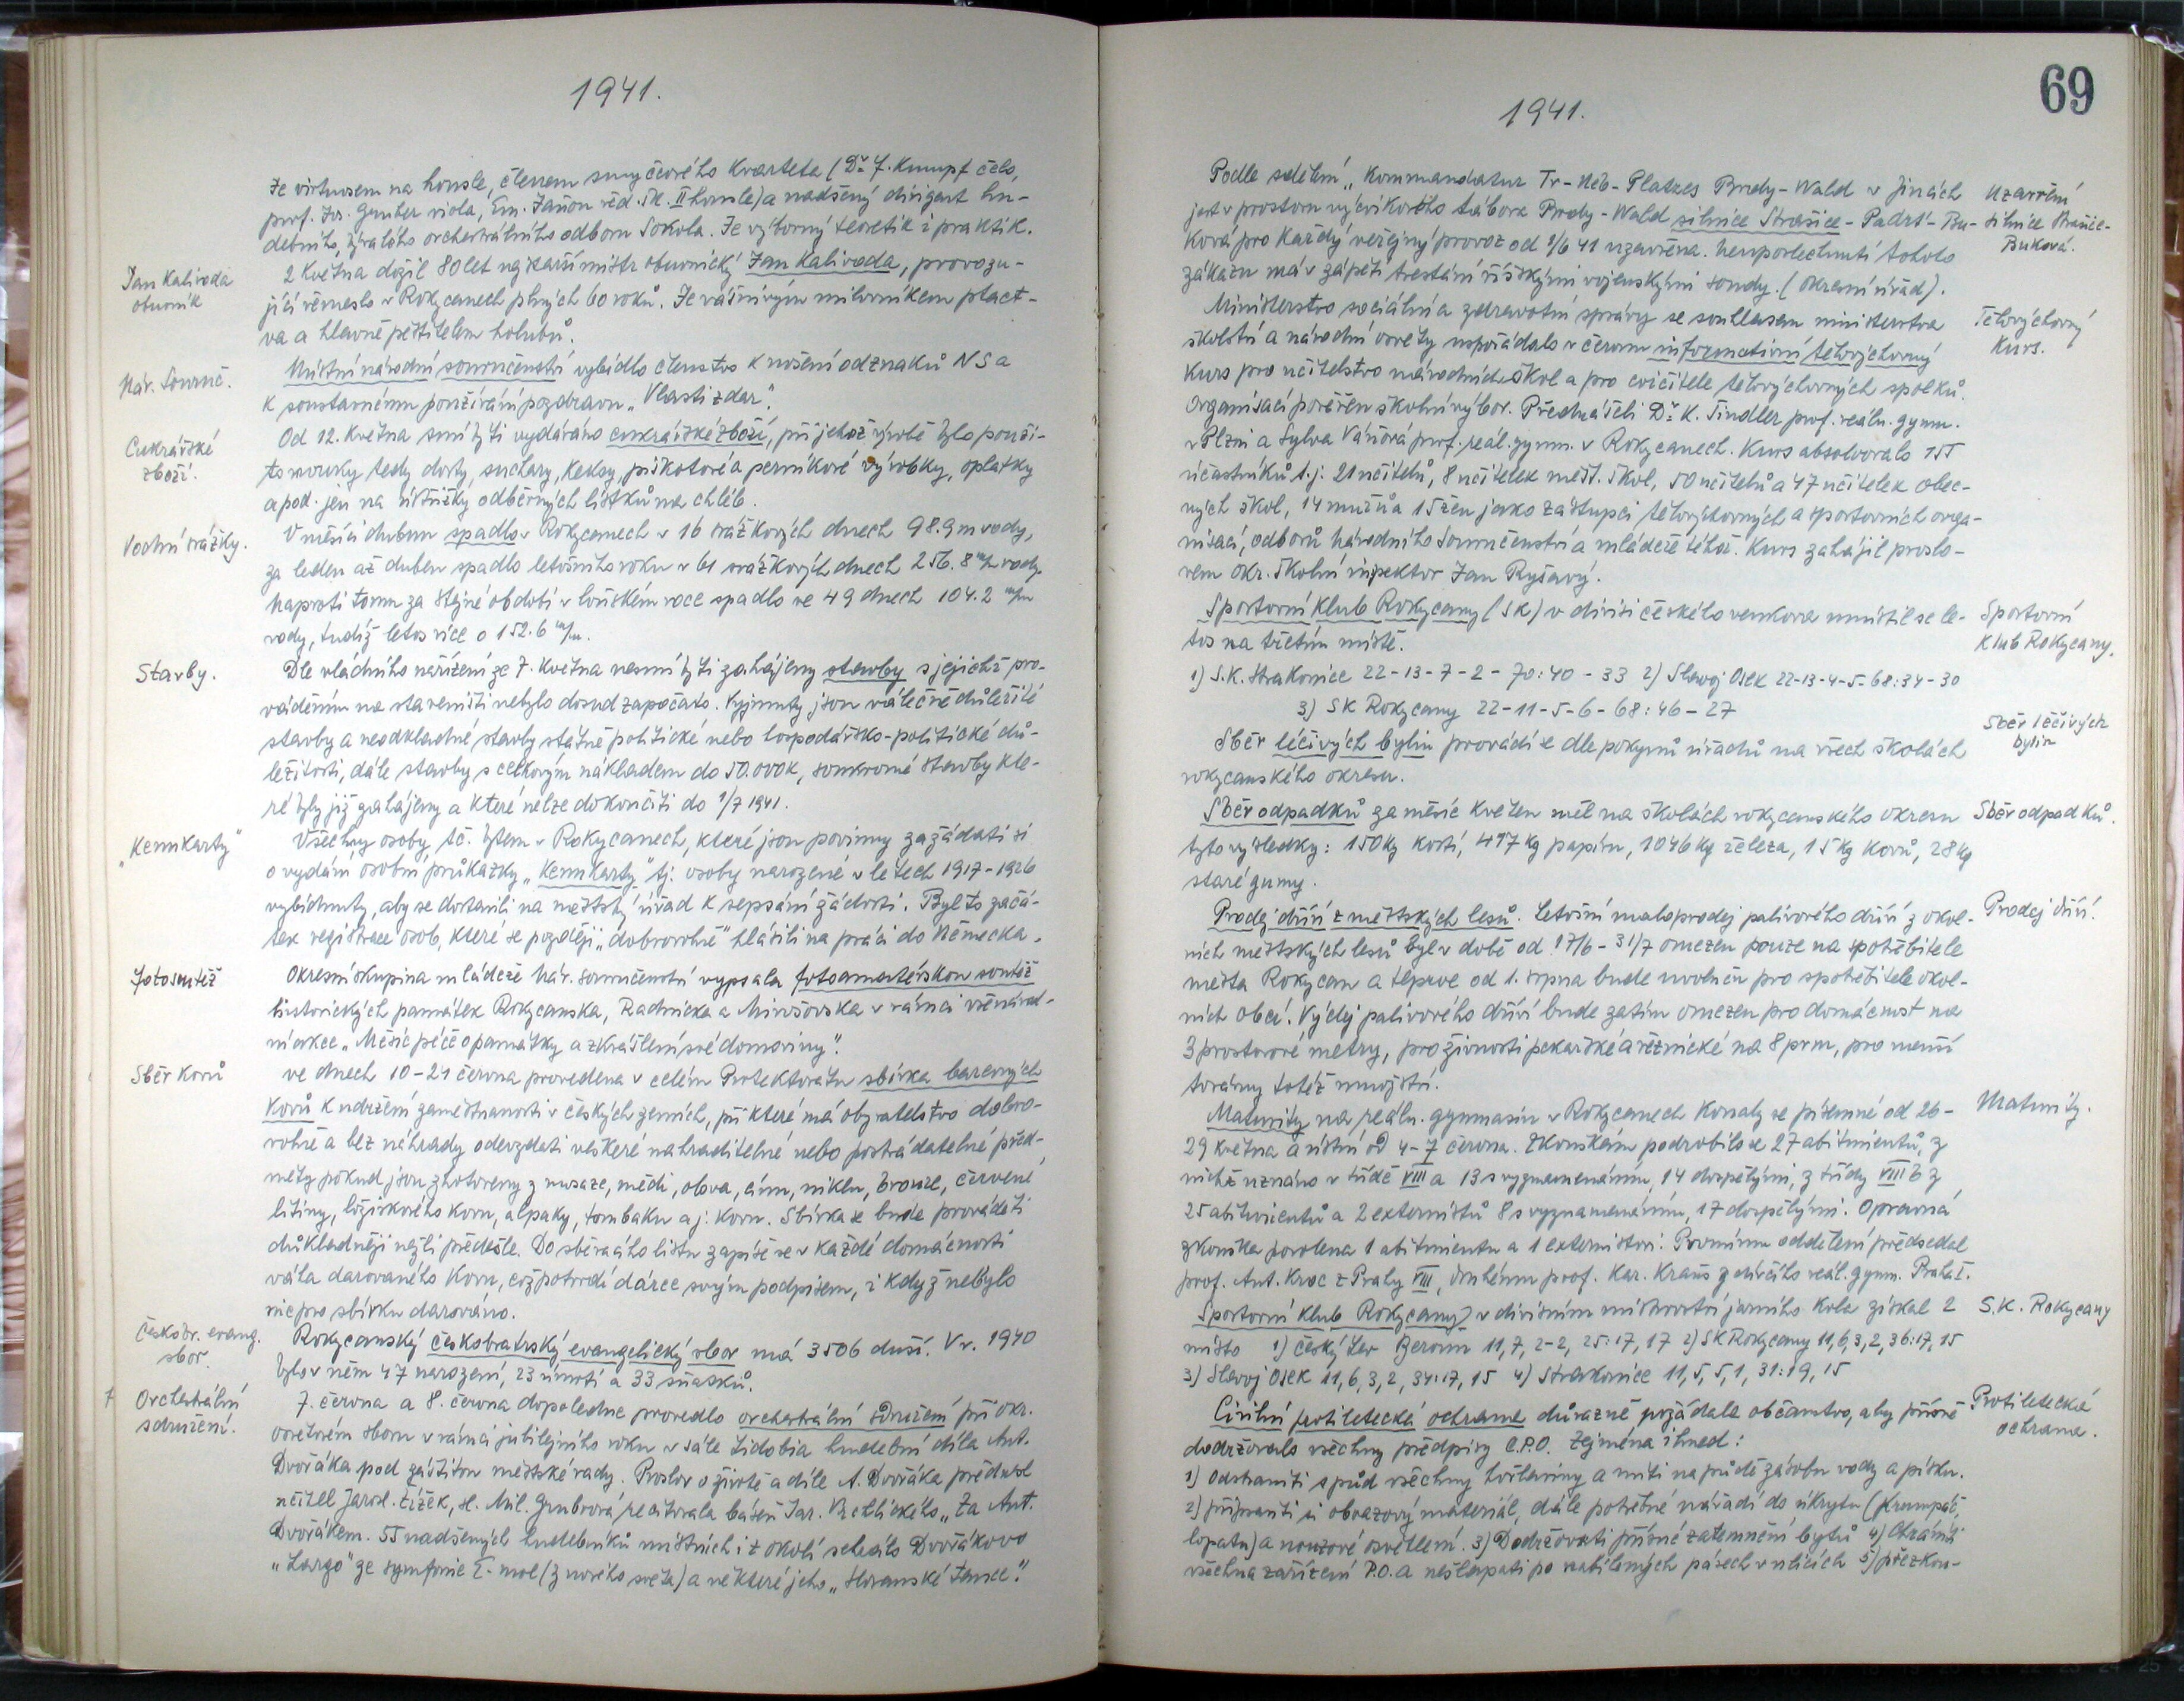 1941.
Je virtuosem na housle, členem smyčcového kvarteta (Dr. J. Kumpf čelo,
prof. Jos. Gruber viola, Em. Jaňou řed. šk. II housle) a nadšený dirigent hu-
debního, bývalého orchestrálního odboru Sokola. Je výborný teoretik i praktik.
Jan Kalivoda
obuvník
2 května dožil 80 let nejstarší mistr obuvnický Jan Kalivoda, provozu-
jící řemeslo v Rokycanech plných 60 roků. Je vášnivým milovníkem ptact-
va a hlavně pěstitelem holubů.
Nár. Souruč.
Místní národní souručenství vybídlo členstvo k nošení odznaků NS a
k soustavnému používání pozdravu „Vlasti zdar".
Cukrářské
zboží.
Od 12. května smí býti vydáváno cukrářské zboží, při jehož výrobě bylo použi-
to mouky tedy dorty, suchary, keksy, piškotové a perníkové výrobky, oplatky
a pod. jen na ústřižky odběrných lístků na chléb.
Vodní srážky.
V měsíci dubnu spadlo v Rokycanech v 16 srážkových dnech 98.9 m vody,
za leden až duben spadlo letošního roku v 61 srážkových dnech 256.8 m/m vody.
Naproti tomu za stejné období v loňském roce spadlo ve 49 dnech 104.2 m/m
vody, tudíž letos více o 152.6 m/m.
Stavby.
Dle vládního nařízení ze 7. května nesmí býti zahájeny stavby s jejichž pro-
váděním na staveništi nebylo dosud započato. Vyjmuty jsou válečně důležité
stavby a neodkladné stavby státně politické nebo hospodářsko-politické dů-
ležitosti, dále stavby s celkovým nákladem do 50.000 K, soukromé stavby kte-
ré byly již zahájeny a které nelze dokončiti do 1/7 1941.
„Kennkarty"
Všechny osoby, tč. bytem v Rokycanech, které jsou povinny zažádati si
o vydání osobní průkazky „Kennkarty" tj. osoby narozené v letech 1917-1926
vybídnuty, aby se dostavili na městský úřad k sepsání žádosti. Byl to začá-
tek registrace osob, které se později „dobrovolně" hlásili na práci do Německa.
Fotosoutěž
Okresní skupina mládeže Nár. souručenství vypsala fotoamatérskou soutěž
historických památek Rokycanska, Radnicka a Mirošovska v rámci všenárod-
ní akce „Měsíc péče o památky a zkrášlení své domoviny".
Sběr kovů
Ve dnech 10-21 června provedena v celém Protektorátu sbírka barevných
kovů k udržení zaměstnanosti v českých zemích, při které má obyvatelstvo dobro-
volně a bez náhrady odevzdati veškeré nahraditelné nebo postradatelné před-
měty pokud jsou zhotoveny z mosaze, mědi, olova, cínu, niklu, bronze, červené
litiny, ložiskového kovu, alpaky, tombaku a j. kovu. Sbírka se bude prováděti
důkladněji nežli předešlé. Do sběracího listu zapíše se v každé domácnosti
váha darovaného kovu, což potvrdí dárce svým podpisem, i když nebylo
nic pro sbírku darováno.
Českobr. evang.
sbor.
Rokycanský českobratrský evangelický sbor má 3506 duší. V r. 1940
bylo v něm 47 narození, 23 úmrtí a 33 sňatků.
Orchestrální
sdružení.
7. června a 8. června dopoledne provedlo orchestrální sdružení při okr.
osvětovém sboru v rámci jubilejního roku v sále Lidobia hudební díla Ant.
Dvořáka pod záštitou městské rady. Proslov o životě a díle A. Dvořáka přednesl
učitel Jarosl. Čížek, sl. Mil. Grubrová recitovala báseň Jar. Vrchlického „Za Ant.
Dvořákem. 55 nadšených hudebníků místních i z okolí sehrálo Dvořákovo
„Largo" ze symfonie E-mol (z nového světa) a některé jeho „Slovanské tance".
69
1941.
Podle sdělení „Kommandatur Tr-Üeb-Platzes Brdy-Wald v Jincích
jest v prostoru výcvikového tábora Brdy-Wald silnice Strašice-Padrť-Bu-
ková pro každý veřejný provoz od 1/6 41 uzavřena. Neuposlechnutí tohoto
zákazu má v zápětí trestání říšskými vojenskými soudy. (Okresní úřad).
Uzavření
silnice Strašice-
Buková.
Ministerstvo sociální a zdravotní správy se souhlasem ministerstva
školství a národní osvěty uspořádalo v červnu informativní tělovýchovný
kurs pro učitelstvo národních škol a pro cvičitele tělovýchovných spolků.
Organisací pověřen školní výbor. Přednášeli Dr. K. Šindler prof. reáln. gymn.
v Plzni a Sylva Váňová prof. reál. gymn. v Rokycanech. Kurs absolvovalo 155
účastníků t.j. 21 učitelů, 8 učitelek měšt. škol, 50 učitelů a 47 učitelek obec-
ných škol, 14 mužů a 15 žen jako zástupci tělovýchovných a sportovních orga-
nisací, odborů Národního Souručenství a mládeže téhož. Kurs zahájil proslo-
vem okr. školní inspektor Jan Ryšavý.
Tělovýchovný
kurs.
Sportovní klub Rokycany (SK) v divisi českého venkova umístil se le-
tos na třetím místě.
1) S.K. Strakonice 22-13-7-2-70:40-33 2) Slavoj Osek 22-13-4-5-68:34-30
3) SK Rokycany 22-11-5-6-68:46-27
Sportovní
klub Rokycany.
Sběr léčivých bylin provádí se dle pokynů úřadů na všech školách
rokycanského okresu.
Sběr léčivých
bylin
Sběr odpadků za měsíc květen měl na školách rokycanského okresu
tyto výsledky: 150 kg kostí, 477 kg papíru, 1046 kg železa, 15 kg kovů, 28 kg
staré gumy.
Sběr odpadků.
Prodej dříví z městských lesů. Letošní maloprodej palivového dříví z okol-
ních městských lesů byl v době od 17/6-31/7 omezen pouze na spotřebitele
města Rokycan a teprve od 1. srpna bude uvolněn pro spotřebitele okol-
ních obcí. Výdej palivového dříví bude zatím omezen pro domácnost na
3 prostorové metry, pro živnosti pekařské a řeznické na 8 prm, pro menší
továrny totéž množství.
Prodej dříví.
Maturity na reáln. gymnasiu v Rokycanech konaly se písemné od 26-
29 května a ústní od 4-7 června. Zkouškám podrobilo se 27 abiturientů, z
nichž uznáno v třídě VIII a 13 s vyznamenáním, 14 dospělými, z třídy VIII b z
25 abiturientů a 2 externistů 8 s vyznamenáním, 17 dospělými. Opravná
zkouška povolena 1 abiturientu a 1 externistovi. Prvnímu oddělení předsedal
prof. Ant. Kroc z Prahy VIII, druhému prof. Kar. Kraus z dívčího reál. gymn. Praha I.
Maturity.
Sportovní klub Rokycany v divisním mistrovství jarního kola získal 2
místo 1) Český Lev Beroun 11,7,2-2, 25:17, 17 2) SK Rokycany 11,6,3,2,36:17,15
3) Slavoj Osek 11,6,3,2,34:17,15 4) Strakonice 11,5,5,1,31:19,15
S.K. Rokycany
Civilní protiletecká ochrana důrazně požádala občanstvo, aby přísně
dodržovalo všechny předpisy C.P.O. Zejména ihned:
1) Odstraniti s půd všechny hořlaviny a míti na půdě zásobu vody a písku.
2) připraviti si obvazový materiál, dále potřebné nářadí do úkrytu (krumpáč,
lopatu) a nouzové osvětlení. 3) Dodržovati přísné zatemnění bytů 4) Chrániti
všechna zařízení P.O. a nešlapati po nabílených pásech v ulicích 5) přezkou-
Protiletecká
ochrana.